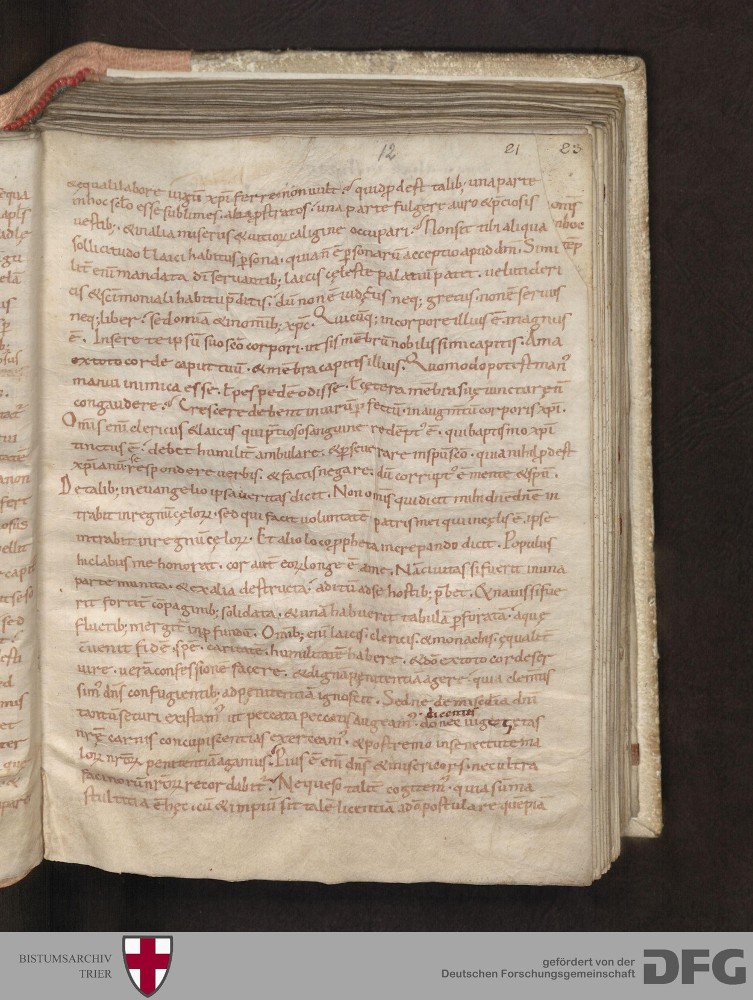 12 21 23
& equali labore iugū xp̄i ferre non uult. quid ꝓdest talib; una parte
in hoc sc̄lo esse sublimes. alia ꝓstratos. una parte fulgere auro & p̄ciosis
omīs
uestib;. & in alia miserus & uitiorū caligine occupari. Non sit tibi aliqua
sollicitudo ł laici habitus ꝑsona. quia ñ ē ꝑsonarū acceptio apud dn̄m. Simi
lit̄ enī mandata dī seruantib; laicis cęleste palatiū patet. uelut cleri
cis & sc̄imoniali habitu p̄ditis. dū non ē iudęus neq; grecus. non ē seruus
neq; liber. sed omīa & in omīb; xp̄c. Quicūq; in corpore illius ē. magnus
ē. Insere te ipsū suo sc̄o corpori. ut sis mēbrū nobilissimi capitis. Ama
ex toto corde caput tuū. & mēbra capitis illius. Quomodo potest man᷒
manui inimica esse. ł pes pedē odisse. ł cętera mēbra suę iuncturę ñ
congaudere. Crescere debent in uirū ꝑfectū. in augm̄tū corporis xp̄i.
Omīs enī clericus & laicus qui p̄tioso sanguine redēpt᷒ ē. qui baptismo xp̄i
tinctus ē. debet humilit̄ ambulare. & ꝑseuerare in sp̄u sc̄o. quia nihil ꝓdest
xp̄ianū se respondere uerbis. & factis negare. dū corript᷒ ē mente & sp̄u.
De talib; in euangelio ipsa ueritas dicit. Non omīs qui dicit mihi dn̄e dn̄e in
trabit in regnū cęlorꝝ. sed qui facit uoluntatē patris mei qui in cęlis ē. ipse
intrabit in regnū cęlorꝝ. Et alio loco ꝓpheta increpando dicit. Populus
hic labiis me honorat. cor aut̄ eorꝝ longe ē a me. Nā ciuitas si fuerit in una
parte munita. & ex alia destructa. aditū ad se hostib; p̄bet. & nauis si fue
rit fortit̄ cōpaginib; solidata. & unā habuerit tabulā ꝑforatā. aquę
fluctib; mergit̄ in ꝓfundū. Omīb; enī laicis. clericis. & monachis. ęqualit̄
cuenit fidē. spē. caritatē. humilitatē habere. & dō ex toto corde ser
uire. uerā confessionē facere. & dignā pęnitentiā agere. quia clemtis
simꝰ dn̄s confugientib; ad pęnitentiā ignoscit. Sed ne de misc̄dia dn̄i
tantū securi existam᷒ ut peccata peccatis augeam᷒. dicentes donec uiget ętas
nr̄ę carnis concupiscentias exerceam᷒. & postremo in senectute ma
lorꝝ nr̄orꝝ pęnitentiā agamus. Pius ē enī dn̄s & misericors. nec ultra
facinorū nr̄orꝝ recordabit̄. Ne queso talit̄ cogitem᷒. quia sūma
stultitia ē hęc. cū & impiū sit talē licentiā a dō postulare
BISTUMSARCHIV
TRIER
gefördert von der
Deutschen Forschungsgemeinschaft
DFG